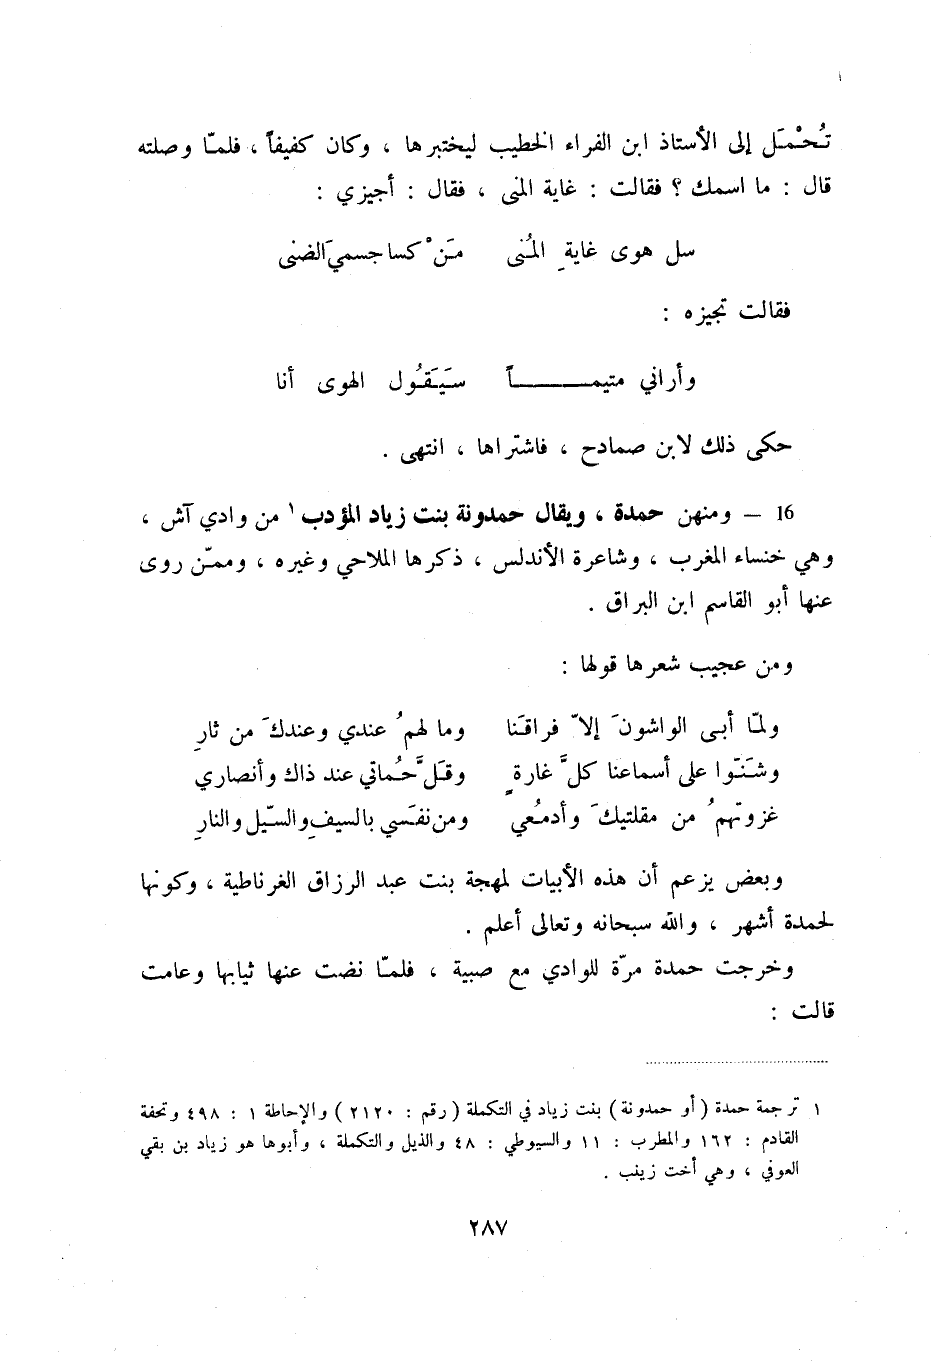 تُحْمَل إلى الأستاذ ابن الفراء الخطيب ليختبرها ، وكان كفيفاً ، فلمّا وصلته
قال : ما اسمك ؟ فقالت : غاية المنى ، فقال : أجيزي :
سل هوى غايةِ المُنى مَنْ كسا جسميَ الضنى
فقالت تجيزه :
وأراني متيمـــــــاً سَيَقُول الهوى أنا
حكى ذلك لابن صمادح ، فاشتراها ، انتهى .
16 – ومنهن حمدة ، ويقال حمدونة بنت زياد المؤدب ١ من وادي آش ،
وهي خنساء المغرب ، وشاعرة الأندلس ، ذكرها الملاحي وغيره ، وممّن روى
عنها أبو القاسم ابن البراق .
ومن عجيب شعرها قولها :
ولمّا أبى الواشونَ إلاّ فراقَنا وما لهمُ عندي وعندكَ من ثارِ
وشَنّوا على أسماعنا كلَّ غارةٍ وقَلَّ حُماتي عند ذاك وأنصاري
غزوتَهمُ من مقلتيكَ وأدمُعي ومن نفَسي بالسيفِ والسّيل والنارِ
وبعض يزعم أن هذه الأبيات لمهجة بنت عبد الرزاق الغرناطية ، وكونها
لحمدة أشهر ، والله سبحانه وتعالى أعلم .
وخرجت حمدة مرّة للوادي مع صبية ، فلمّا نضت عنها ثيابها وعامت
قالت :
١ ترجمة حمدة (أو حمدونة) بنت زياد في التكملة (رقم : ٢١٢٠) والإحاطة ١ : ٤٩٨ وتحفة
القادم : ١٦٢ والمطرب : ١١ والسيوطي : ٤٨ والذيل والتكملة ، وأبوها هو زياد بن بقي
العوفي ، وهي أخت زينب .
٢٨٧